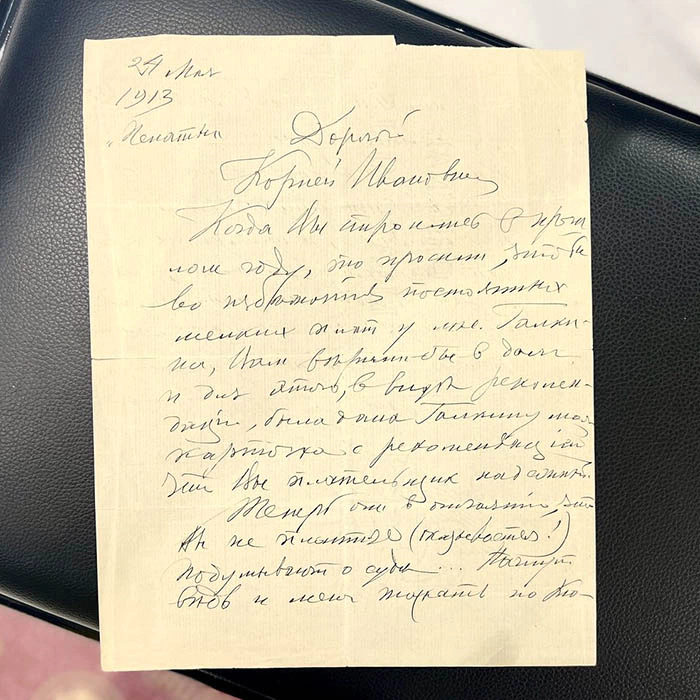 24 Мая
1913
"Пенаты"
Дорогой
Корней Иванович
Когда Вы строились в прош
лом году, то просили, чтобы
во избежание постоянных
мелких плат у М-ме Галки-
на, Вам верили бы в долг
и для этого, в виде рекомен-
дации, была дана Галкину моя
карточка с рекомендацией
что Вы плательщик надежный.
Теперь они в отчаянии, что
Вы не платите (отказываетесь!)
подумывают о суде... Начнут
и меня таскать по